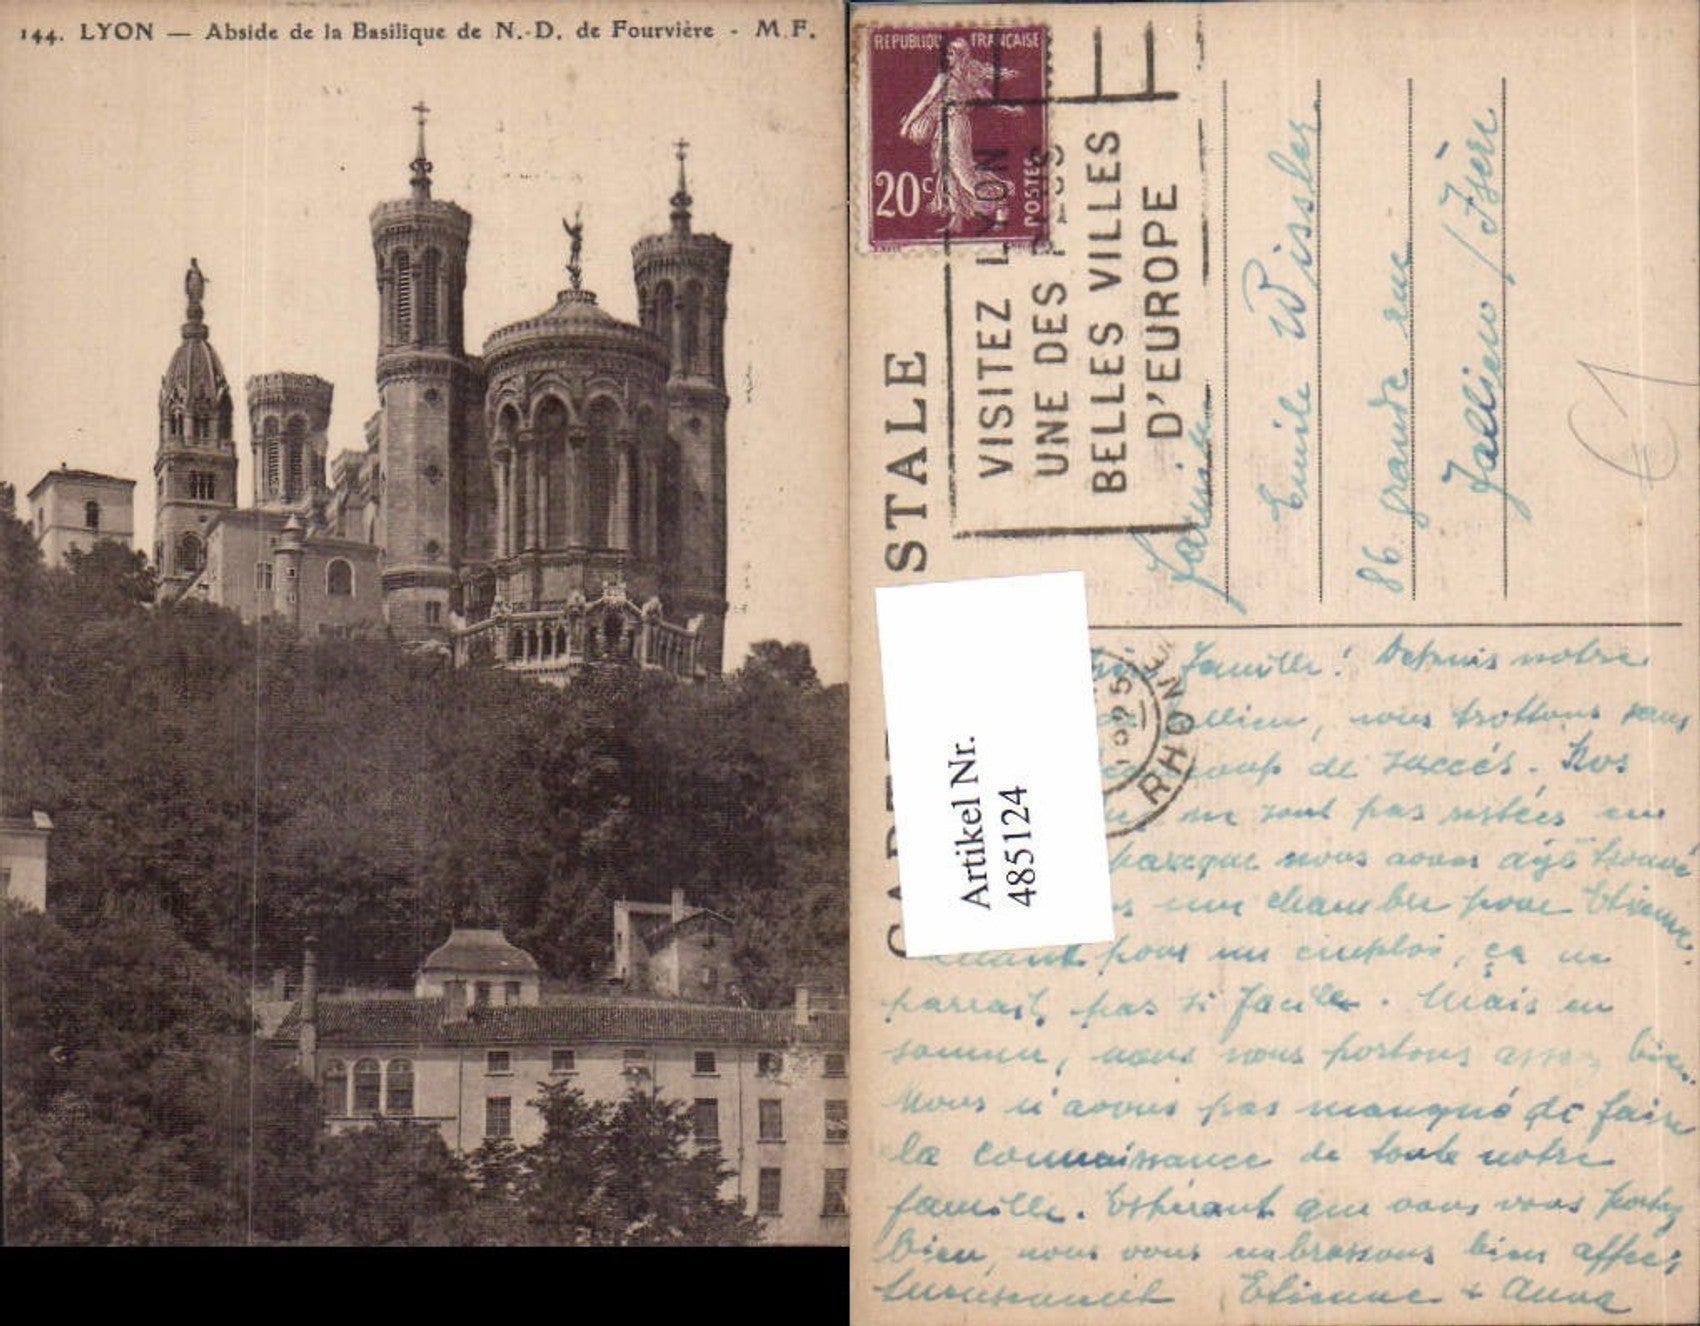 144. LYON — Abside de la Basilique de N.-D. de Fourvière - M. F.
REPUBLIQUE FRANÇAISE
20c
POSTES
VISITEZ LYON
UNE DES PLUS
BELLES VILLES
D'EUROPE
STALE
RHONE
Artikel Nr.
4851124
Famille
Emile Wissler
86 grande rue
Jallieu / Isère
€ 1
famille! Depuis notre
, nous trottons sans
coup de succés. Nos
ne sont pas restées en
parceque nous avons déjà trouvé
une chambre pour Etienne.
pour un emploi, ça ne
parrait pas si facile. Mais en
somme, nous nous portons assez bien.
Nous n'avons pas manqué de faire
la connaissance de toute notre
famille. Espérant que vous vous portez
bien, nous vous embrassons bien affec-
tueusement Etienne + Anna